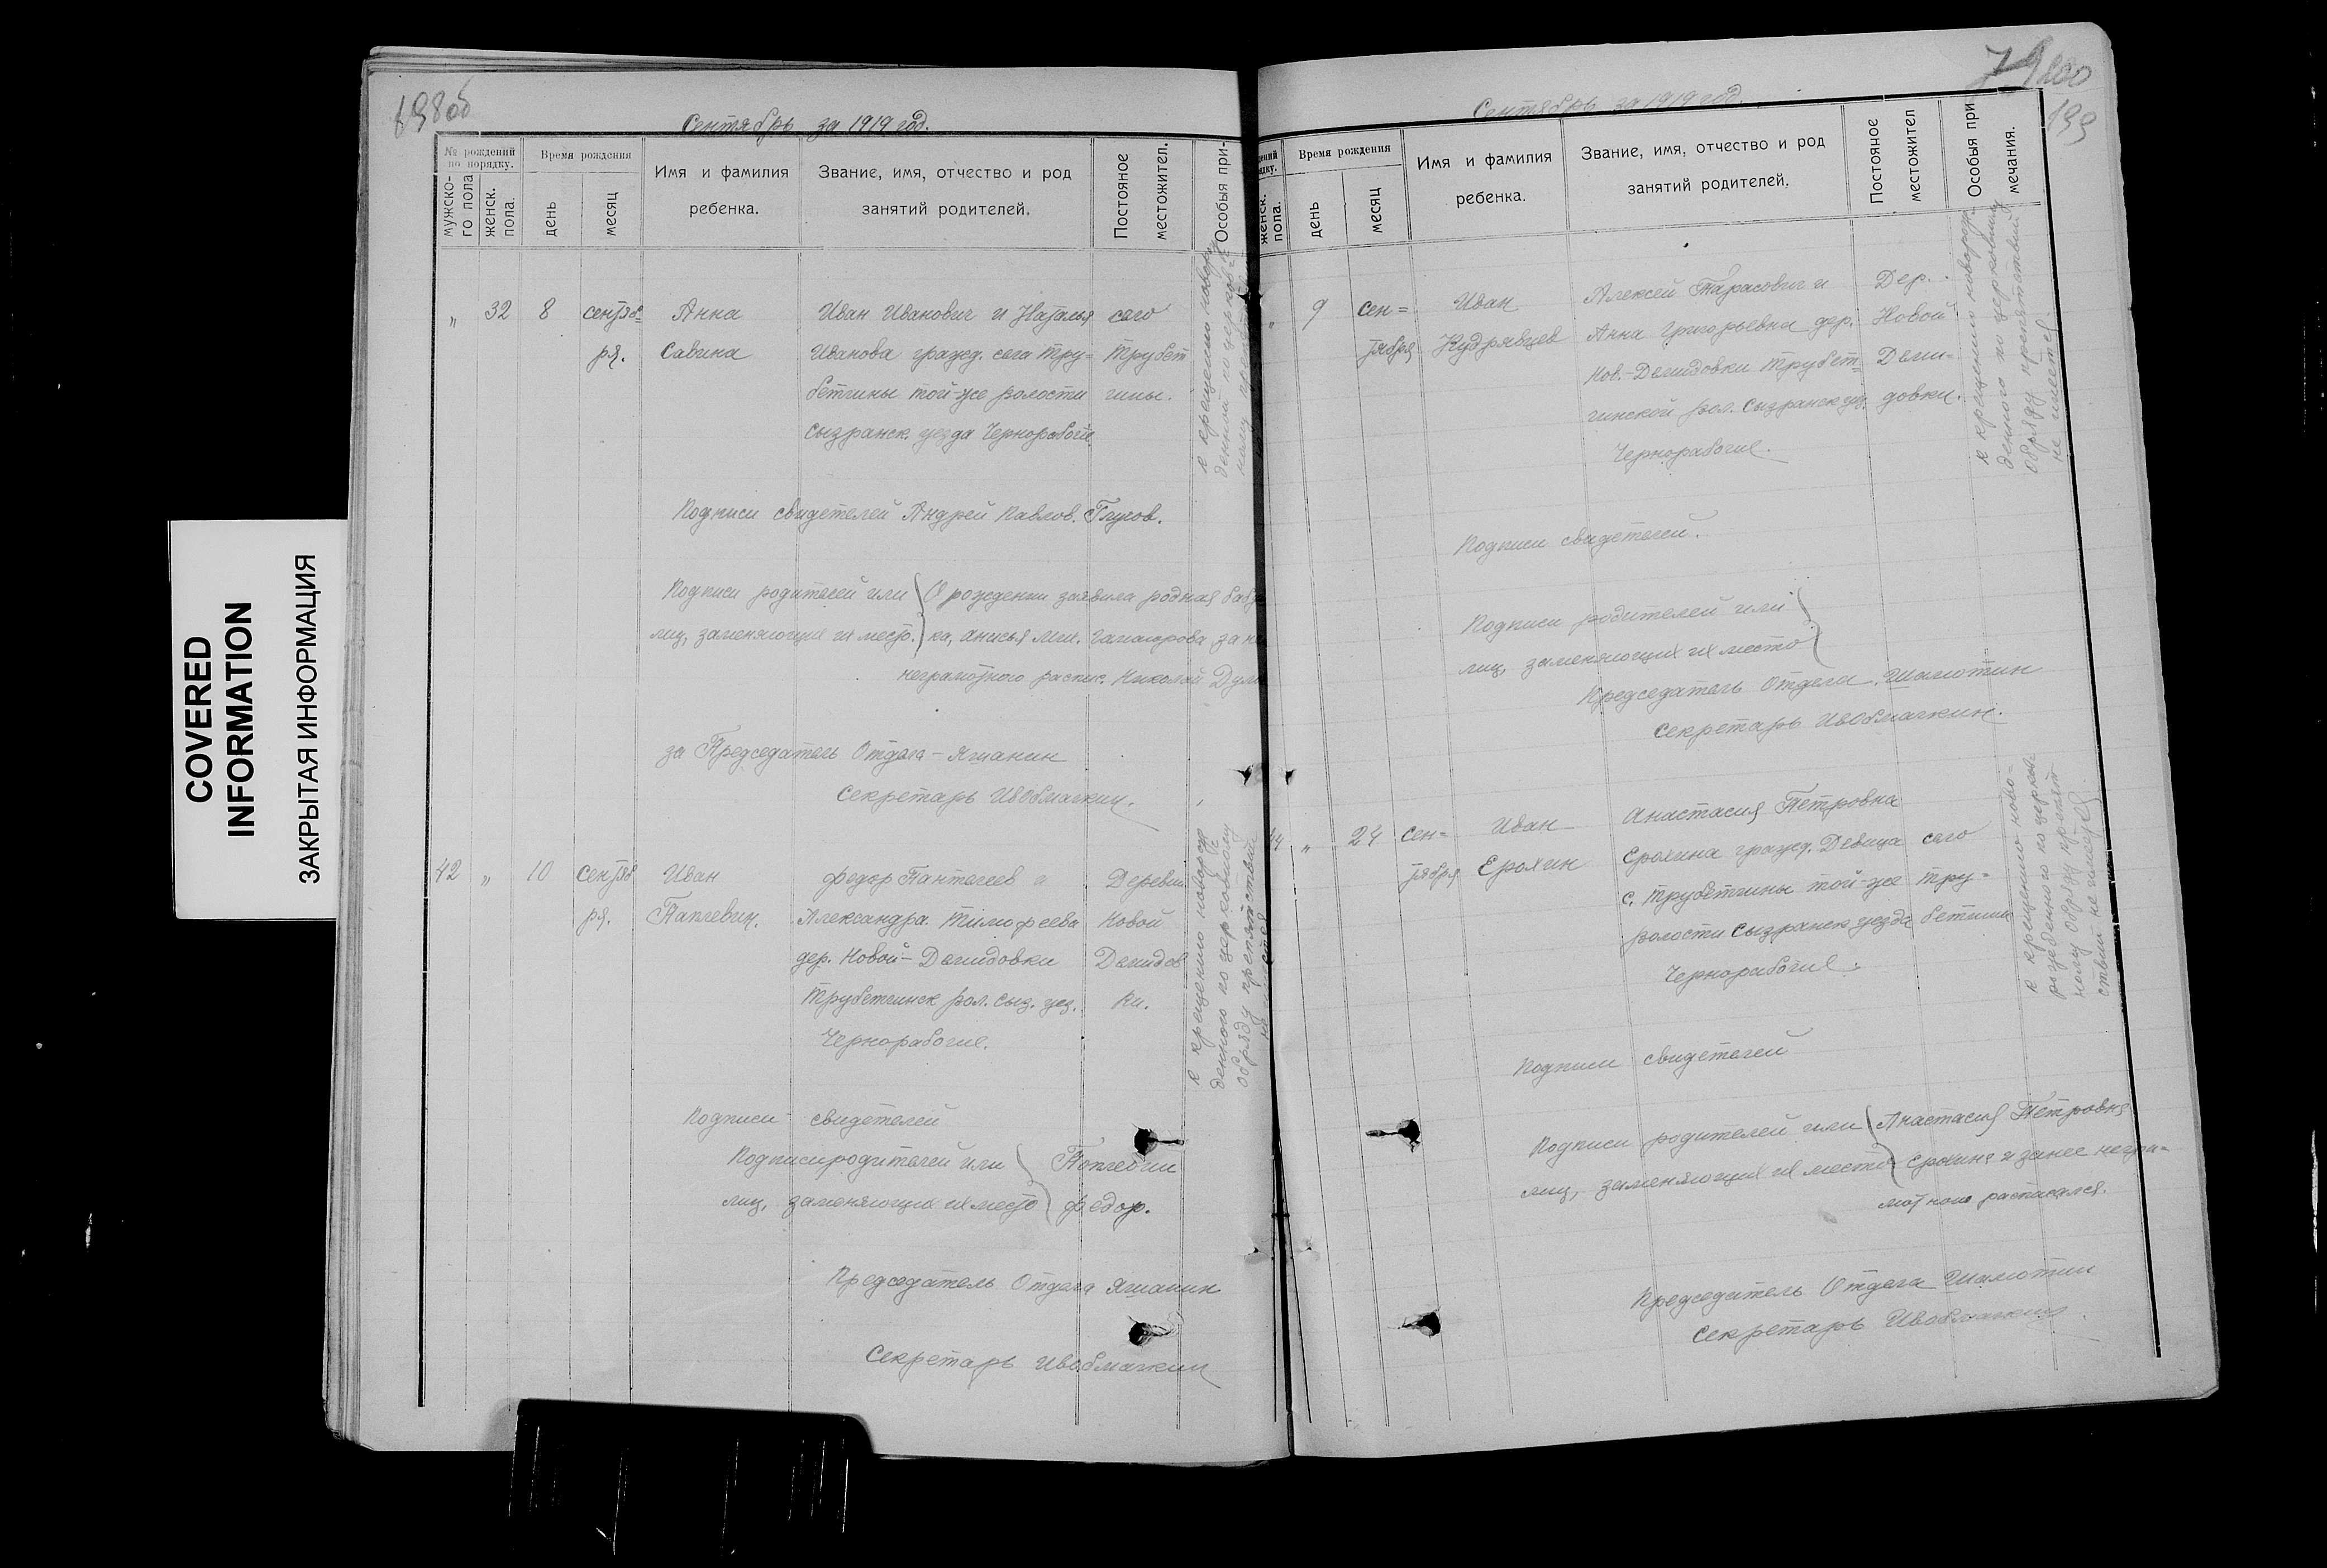 COVERED
INFORMATION
ЗАКРЫТАЯ ИНФОРМАЦИЯ
198об
Сентябрь за 1919 год.
№ рождений
по порядку.
Время рождения
мужско-
го пола
женск.
пола.
день
месяц
Имя и фамилия
ребенка.
Звание, имя, отчество и род
занятий родителей.
Постояное
местожител.
Особыя при-
„ 32 8 сентяб-
ря.
Анна
Савина
Иван Иванович и Наталья
Иванова гражд. села Тру-
бетчины той-же волости
Сызранск. уезда Чернорабоч.
село
Трубет
чины.
к крещению новорж
денной по церков-
Подписи свидетелей Андрей Павлов.
Подписи родителей или
лиц, заменяющих их место.
О рождении заявила родная
ка, Анисья
неграмотного распис. Николай
за Председатель Отдела - Яшанин
Секретарь
42 „ 10 сентяб
ря.
Иван
Паплевин.
Федор Пантелеев и
Александра Тимофеева
дер. Новой-Демидовки
Трубетчинск вол. Сыз. уез.
Чернорабочие.
Деревни
Новой
Демидов
ки.
к крещению новорж
денного по церковному
обряду препятствий
Подписи свидетелей
Подписи родителей или
лиц, заменяющих их место
Паплевин
Федор.
Председатель Отдела Яшанин
Секретарь
200
199
Сентябрь за 1919 год.
Время рождения
женск.
пола.
день
месяц
Имя и фамилия
ребенка.
Звание, имя, отчество и род
занятий родителей.
Постояное
местожител
Особыя при
мечания.
„ 9 сен=
тября
Иван
Кудрявцев
Алексей Тарасович и
Анна Григорьевна дер.
Нов.-Демидовки Трубет=
чинской вол. Сызранск уез.
Чернорабочие.
Дер.
Новой
Деми-
довки.
к крещению новорж
денного по церковному
обряду препятствий
не имеется
Подписи свидетелей.
Подписи родителей или
лиц, заменяющих их место
Председатель Отдела Шамотин
Секретарь
„ 24 сен=
тября
Иван
Ерохин
Анастасия Петровна
Ерохина гражд. Девица
с. Трубетчины той-же
волости Сызранск уезда
Чернорабочие.
село
Тру=
бетчины
к крещению ново-
рожденного по церков-
ному обряду препят
ствий не имеется
Подписи свидетелей
Подписи родителей или
лиц, заменяющих их место
Анастасия Петровна
Ерохина и за нее негра=
мотною расписался.
Председатель Отдела Шамотин
Секретарь